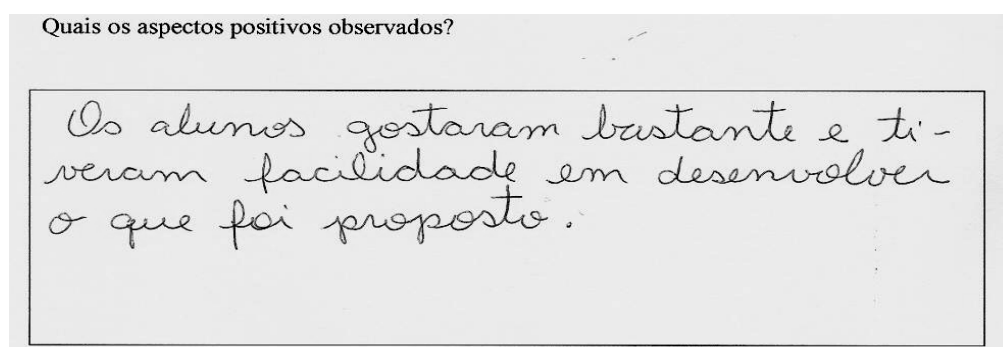 Quais os aspectos positivos observados?
Os alunos gostaram bastante e ti-
veram facilidade em desenvolver
o que foi proposto.